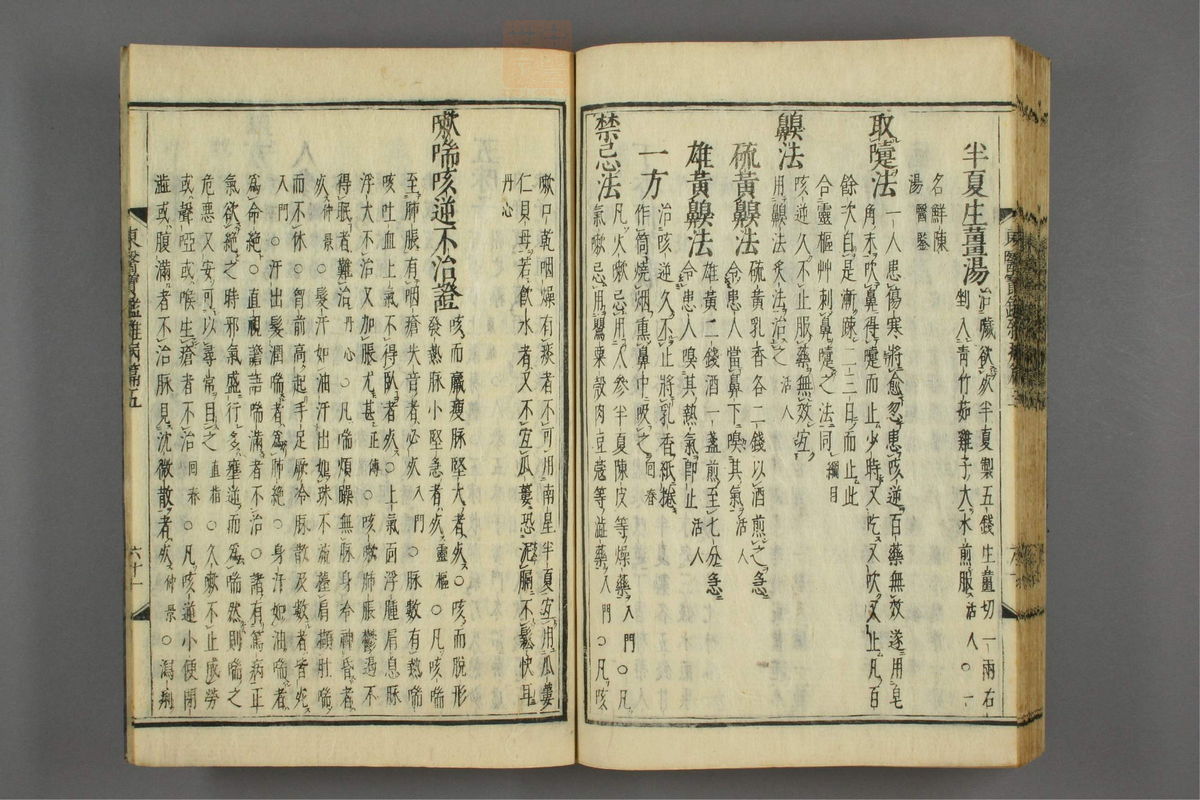 半夏生薑湯 治噦欲死半夏製五錢生薑切一兩右
剉入靑竹茹雞子大水煎服活人○一
名鮮陳
湯醫鑒
取嚏法 一人患傷寒將愈忽患咳逆百藥無效遂用皂
角末吹鼻得嚏而止少時又吃又吹又止凡百
餘次自是漸疎二三日而止此
合靈樞艸刺鼻嚏之法同綱目
齅法 咳逆久不止服藥無效宜
用齅法灸法治之活人
硫黃齅法 硫黃乳香各二錢以酒煎之急
令患人當鼻下嗅其氣活人
雄黃齅法 雄黃二錢酒一盞煎至七分急
令患人嗅其熱氣卽止活人
一方 治咳逆久不止將乳香紙捲
作筒燒烟熏鼻中吸之回春
禁忌法 凡火嗽忌用人參半夏陳皮等燥藥入門○凡
氣嗽忌用罌粟殼肉豆蔲等澁藥入門○凡咳
嗽口乾咽燥有痰者不可用南星半夏宜用瓜蔞
仁貝母若飮水者又不宜瓜蔞恐泥膈不鬆快耳
丹心
嗽喘咳逆不治證 咳而羸瘦脉堅大者死○咳而脫形
發熱脉小堅急者死靈樞○凡咳喘
至肺脹有咽瘡失音者必死入門○脉數有熱喘
咳吐血上氣不得臥者死○上氣面浮腫肩息脉
浮大不治又加脹尤甚正傳○咳嗽肺脹鬱遏不
得眠者難治丹心○凡喘煩躁無脉身冷神昏者
死仲景○髮汗如油汗出如珠不流擡肩擷肚喘
而不休○胷前高起手足厥冷脉散及數者皆死
入門○汗出髮潤喘者爲肺絶○身汗如油喘者
爲命絶○直視譫語喘滿者不治○諸有篤病正
氣欲絶之時邪氣盛行多壅逆而爲喘然則喘之
危惡又安可以尋常目之直指○久嗽不止成勞
或聲啞或喉生瘡者不治回春○凡咳逆小便閉
澁或腹滿者不治脉見沈微散者死仲景○瀉痢
東醫寶鑑雜病篇五
六十一